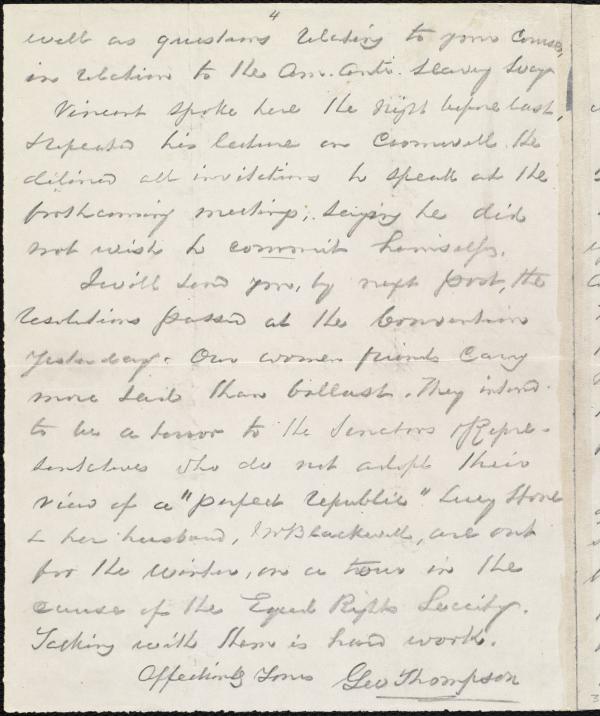 4
well as questions relating to your course,
in relation to the Am. Anti. Slavery Socy.
Vincent spoke here the night before last,
& repeated his lecture on Cromwell. He
declined all invitations to speak at the
forthcoming meetings; saying he did
not wish to commit himself.
I will send you, by next post, the
resolutions passed at the Convention
yesterday. Our women friends carry
more sail than ballast. They intend
to be a terror to the Senators & Repre-
sentatives who do not adopt their
view of a "perfect republic" Lucy Stone
& her husband, Blackwell, are out
for the winter, on a tour in the
cause of the Equal Rights Society.
Talking with them is hard work.
Affectionately Yours Geo Thompson